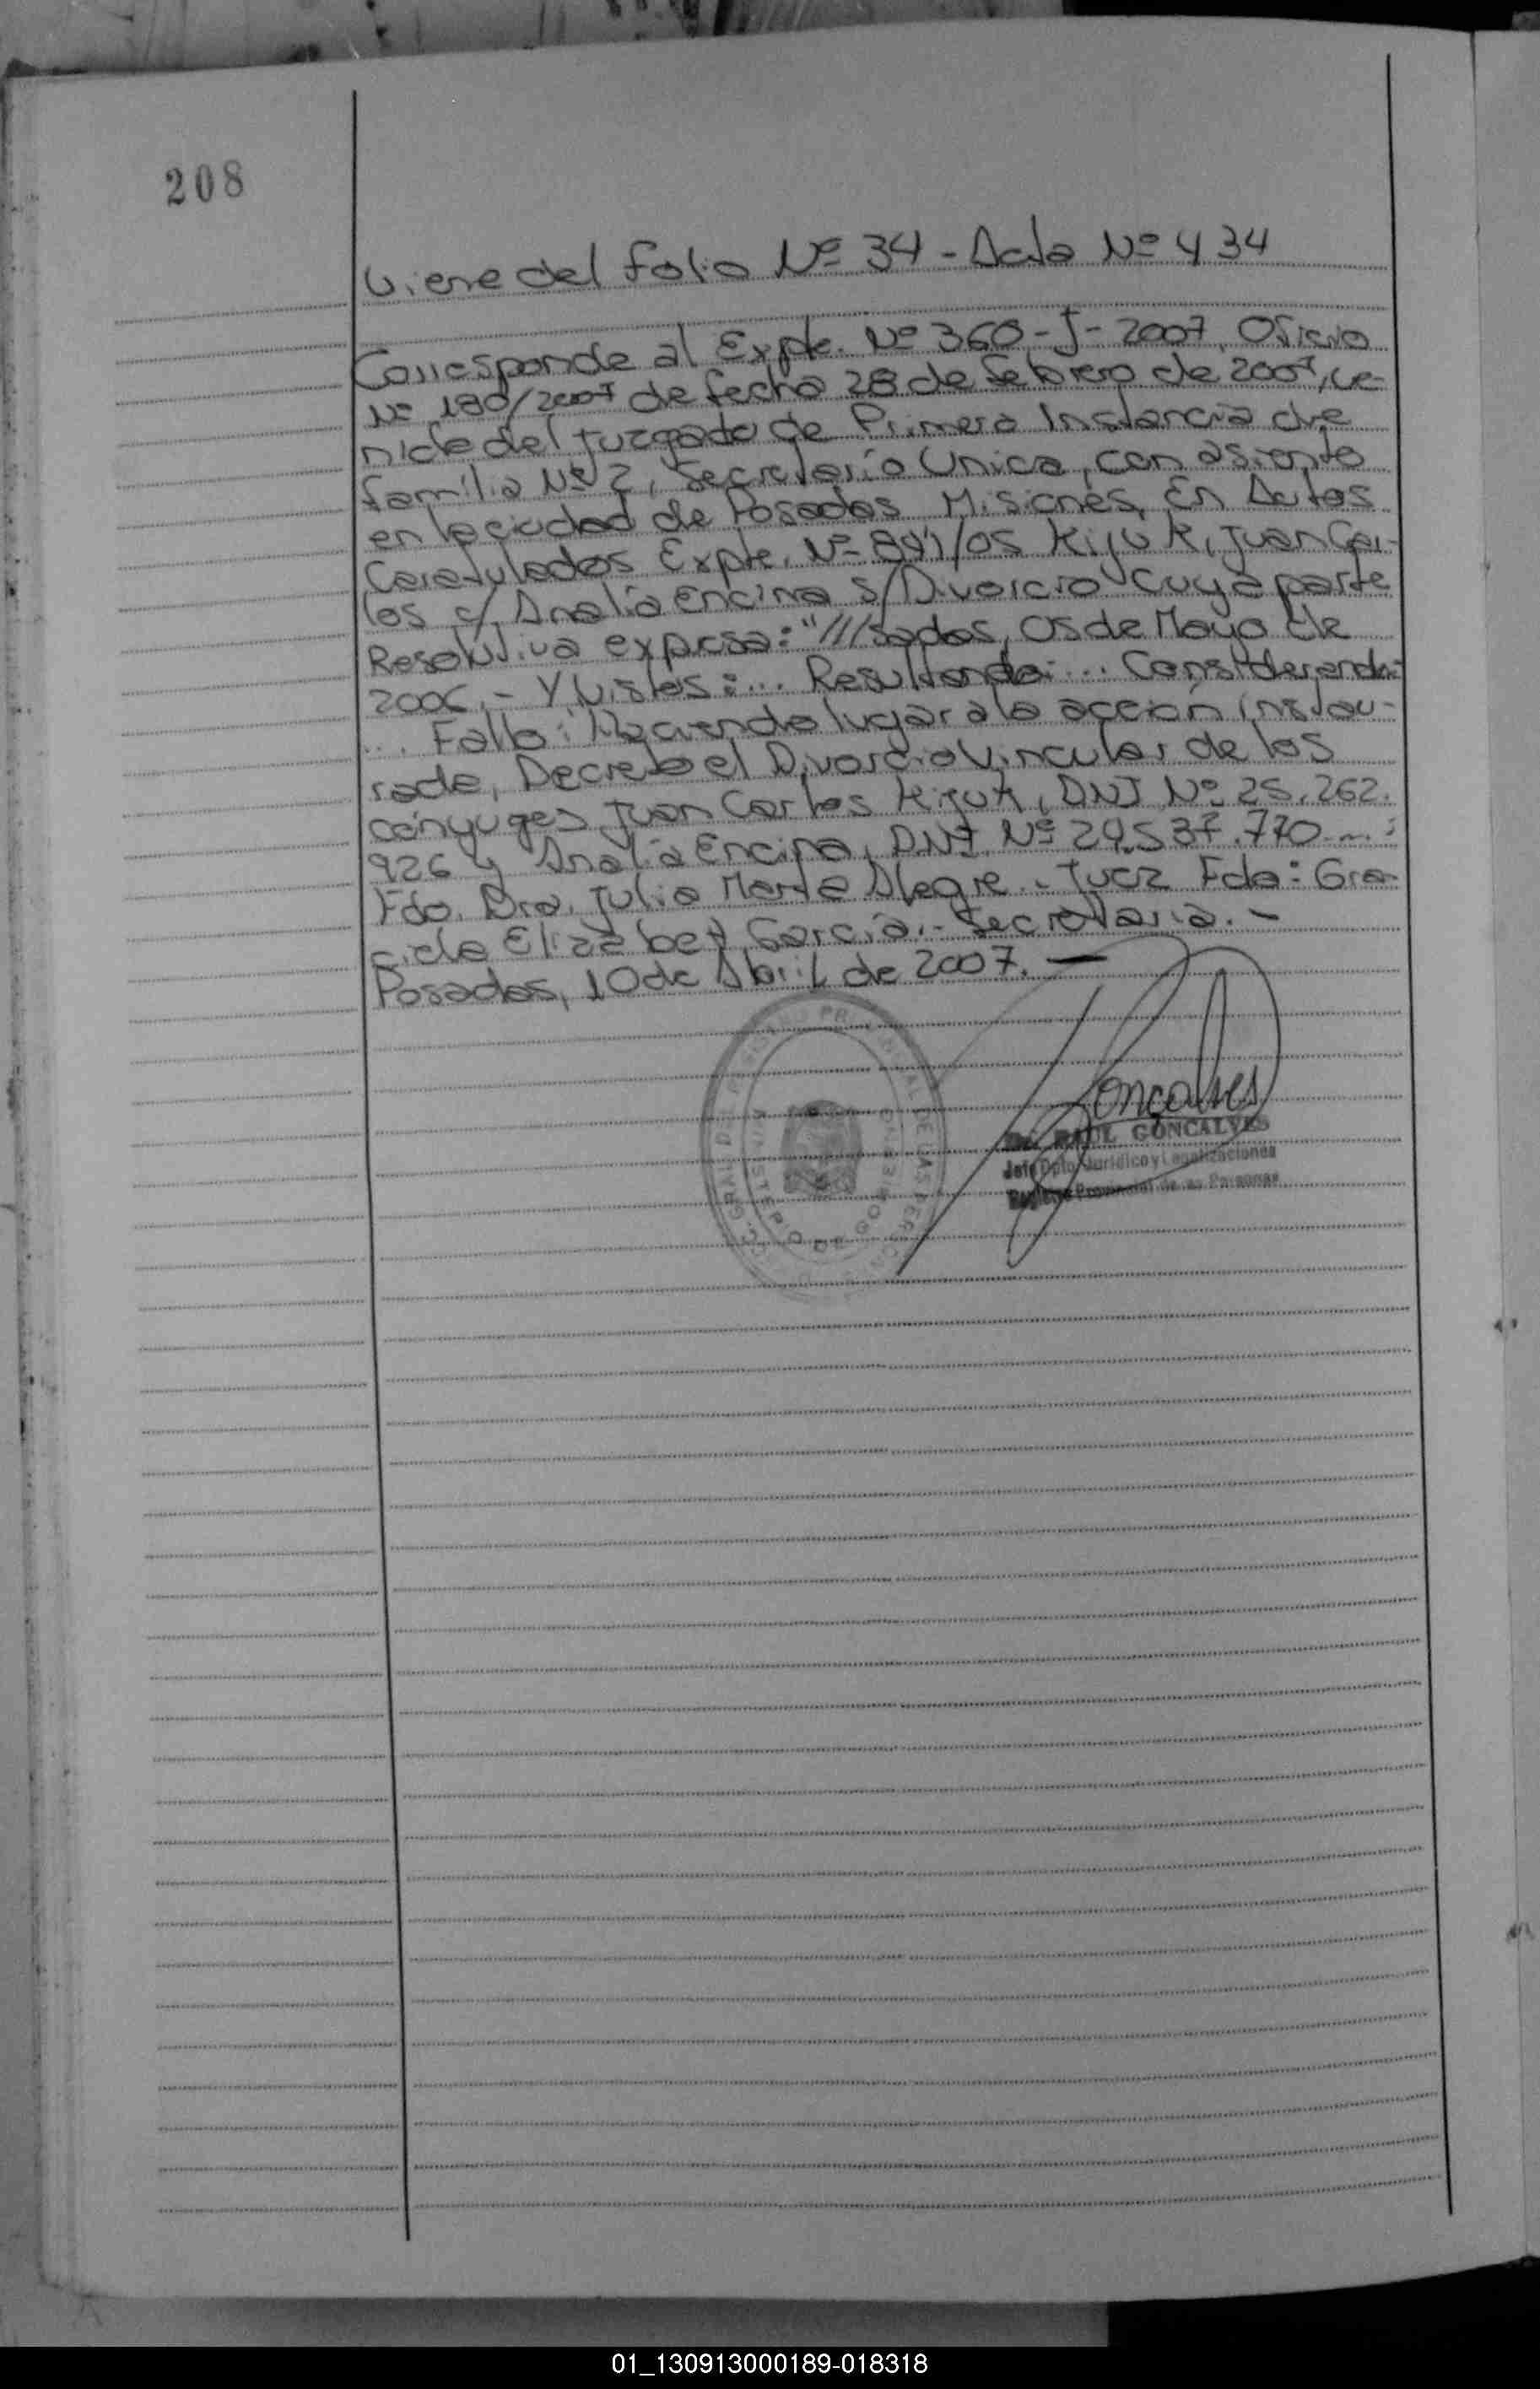 208
Viene del folio Nº 34 - Acta Nº 434
Corresponde al Expte. Nº 360-J-2007, Oficio
Nº 180/2007 de fecha 28 de febrero de 2007, ve-
nido del Juzgado de Primera Instancia de
familia Nº 2, Secretaría Unica, con asiento
en la ciudad de Posadas Misiones, En Autos
Caratulados Expte. Nº 841/05 Kijuk, Juan Car-
los c/ Analía Encina S/Divorcio cuya parte
Resolutiva expresa: "///sadas, 05 de Mayo de
2006.- Y Vistos:... Resultando:... Considerando:
... Fallo: Haciendo lugar a la acción instau-
rada, Decreto el Divorcio Vincular de los
cónyuges Juan Carlos Kijuk, DNI Nº 25.262.
926 y Analía Encina, DNI Nº 24.537.770...:
Fdo. Dra. Julia Marta Alegre.- Juez Fdo: Gra-
ciela Elizabet García.- Secretaria.-
Posadas, 10 de Abril de 2007.-
Goncalves
RAUL GONCALVES
Jefe Dpto. Jurídico y Legalizaciones
Registro Provincial de las Personas
PROVINCIAL DE LAS PERSONAS
MINISTERIO DE GOBIERNO
01_130913000189-018318